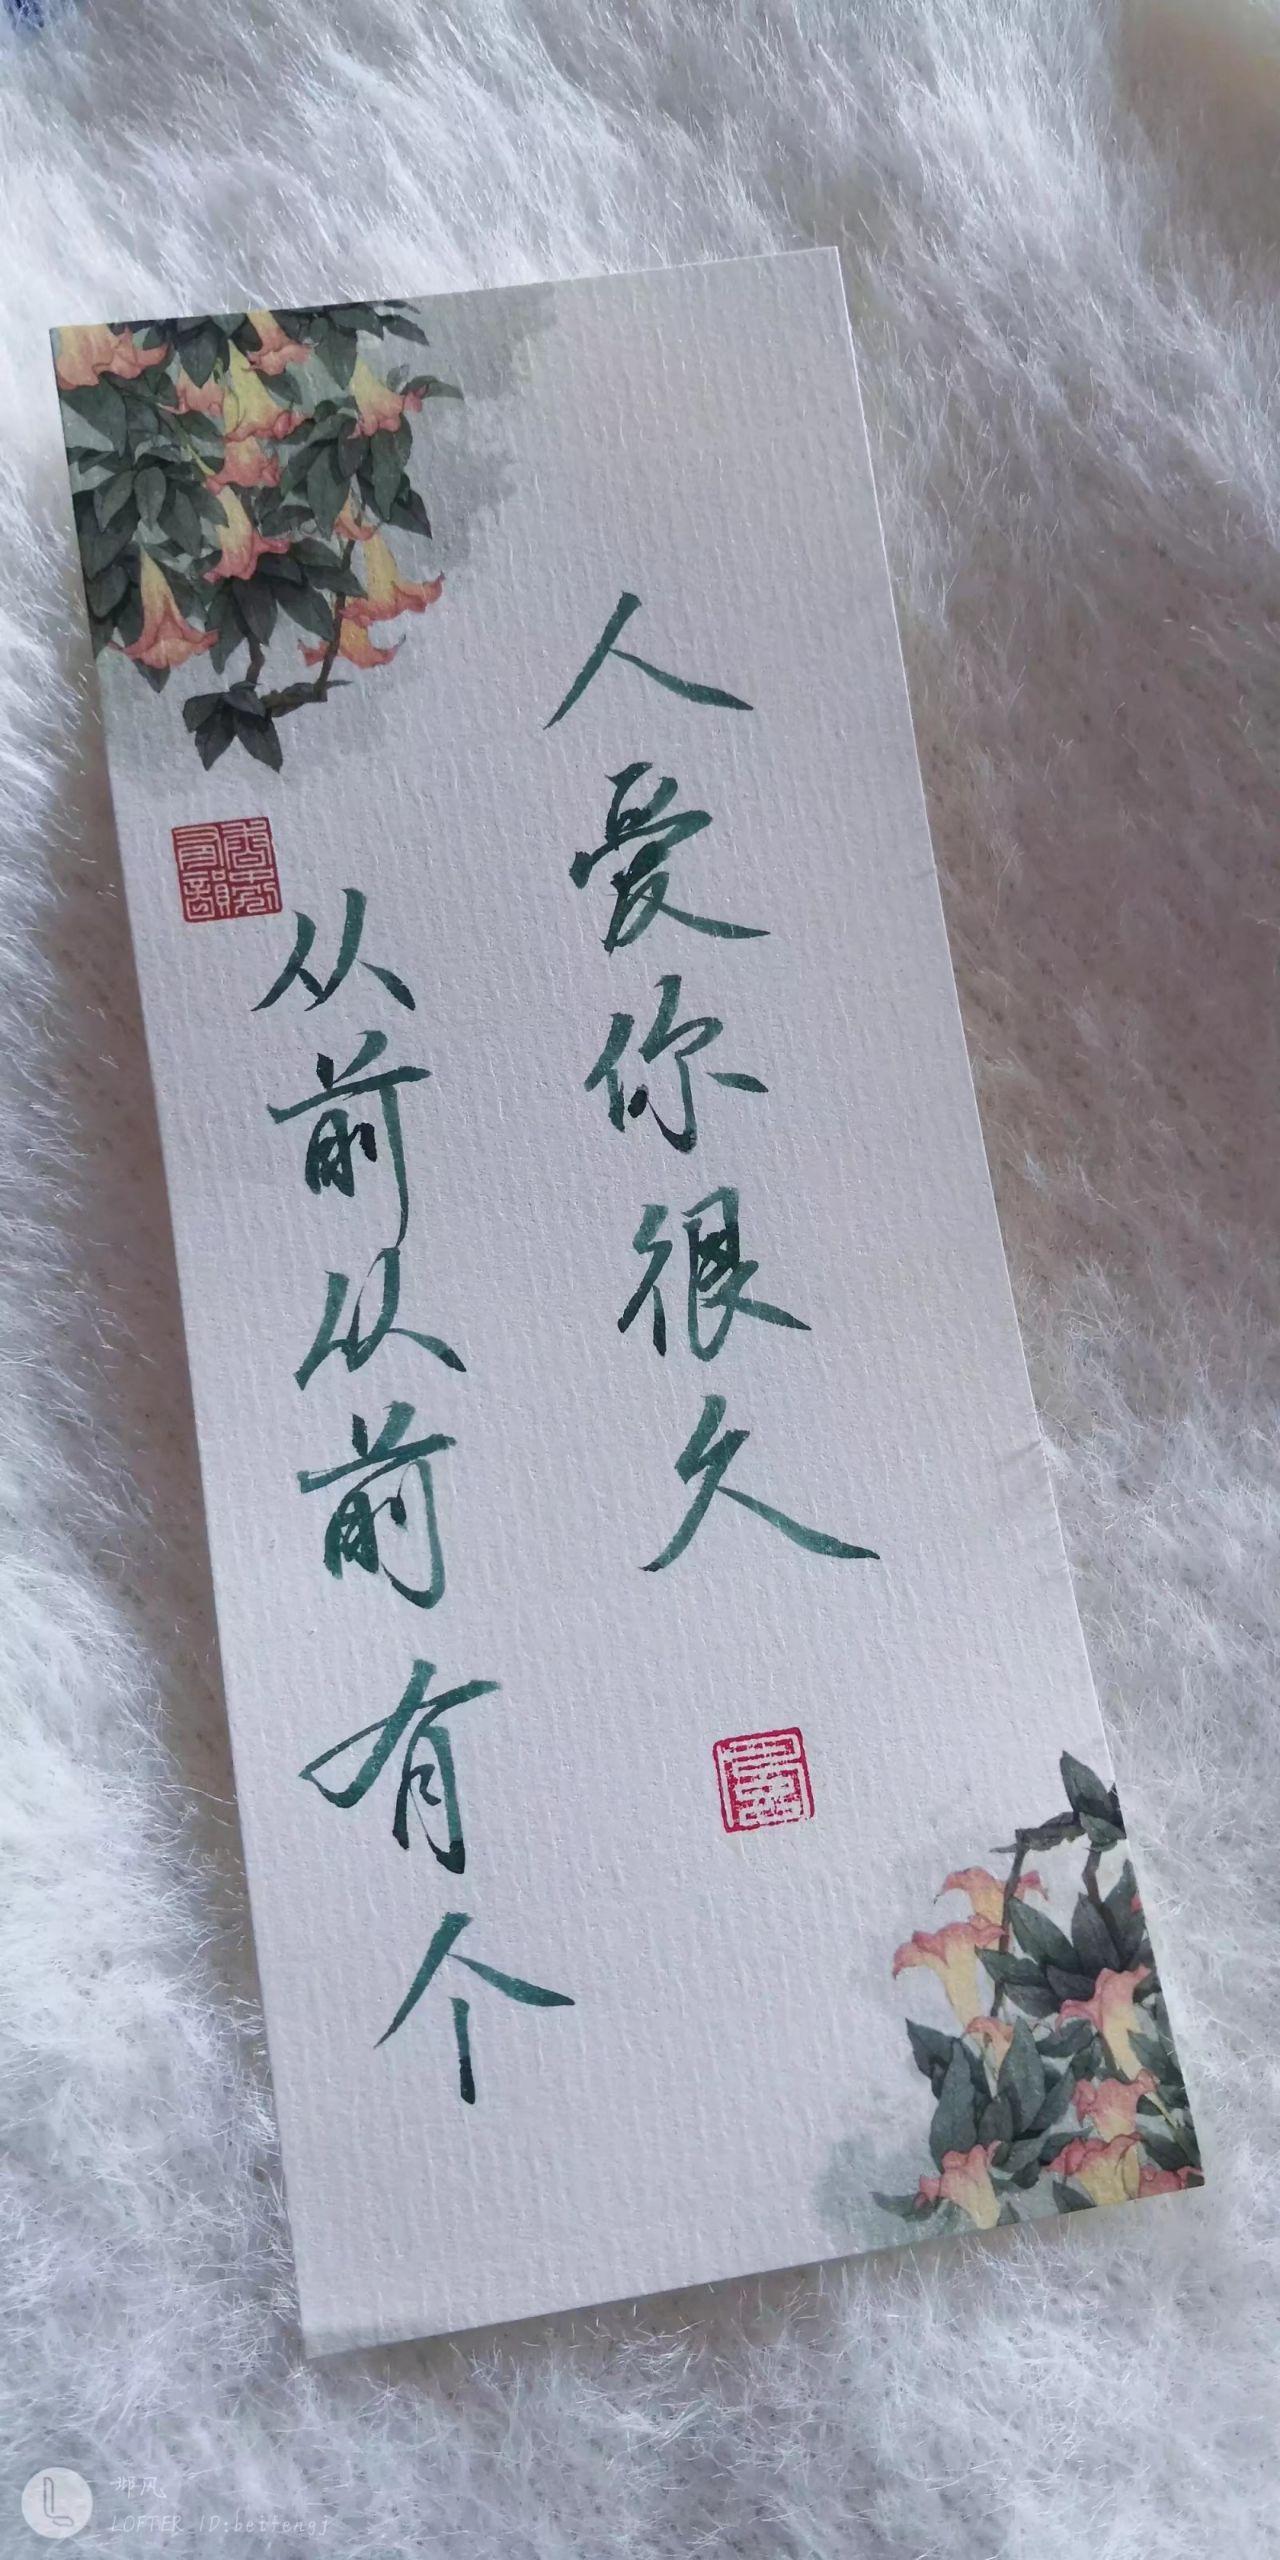 从前从前有个
人爱你很久
邶风
LOFTER ID:beifengj